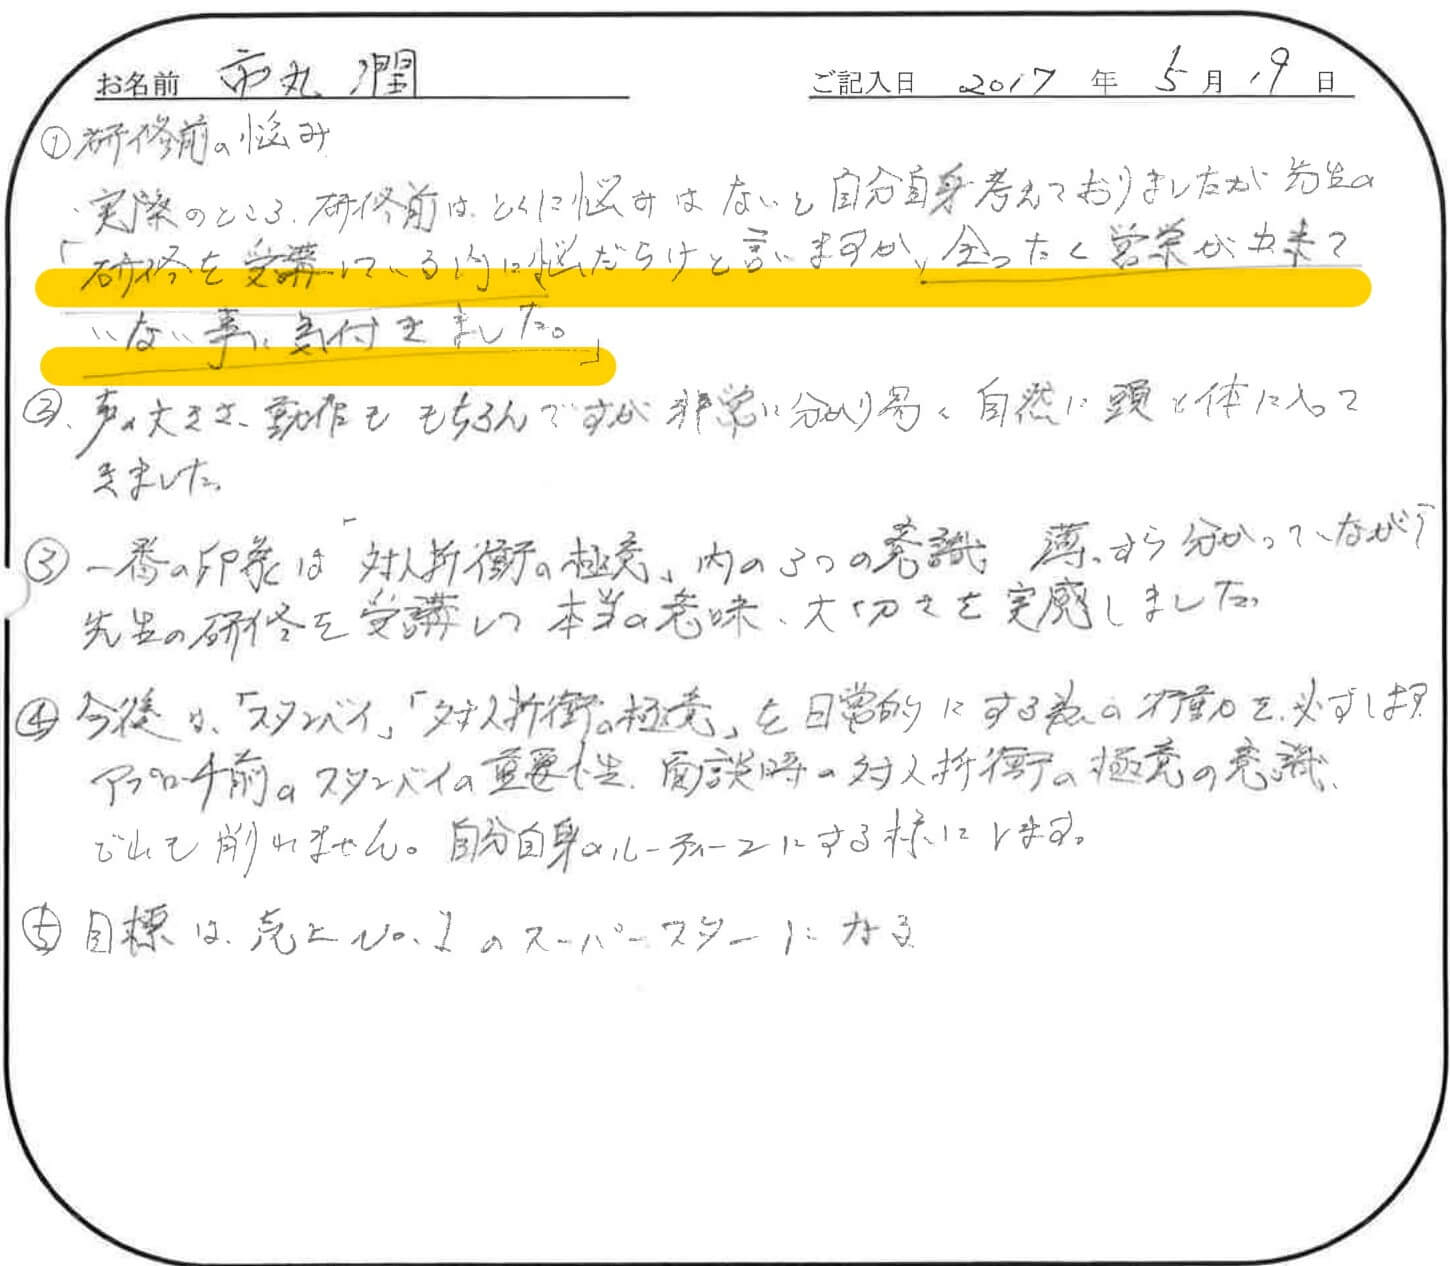 お名前 市丸 潤 ご記入日 2017 年 5 月 19 日
①研修前の悩み
実際のところ、研修前は、とくに悩みはないと自分自身考えておりましたが先生の
「研修を受講している内に悩だらけと言いますか、全ったく営業が出来て
いない事に気付きました。」
②、声の大きさ、動作ももちろんですが非常に分かり易く自然に頭と体に入って
きました。
③一番の印象は「対人折衝の極意」内の3つの意識 薄っすら分かっていながら
先生の研修を受講して本当の意味、大切さを実感しました。
④今後は、「スタンバイ」「対人折衝の極意」を日常的にする為の行動を必ずします
アプローチ前のスタンバイの重要性、面談時の対人折衝の極意の意識、
どれも削れません。自分自身のルーティーンにする様にします。
⑤目標は、売上No.1のスーパースターになる